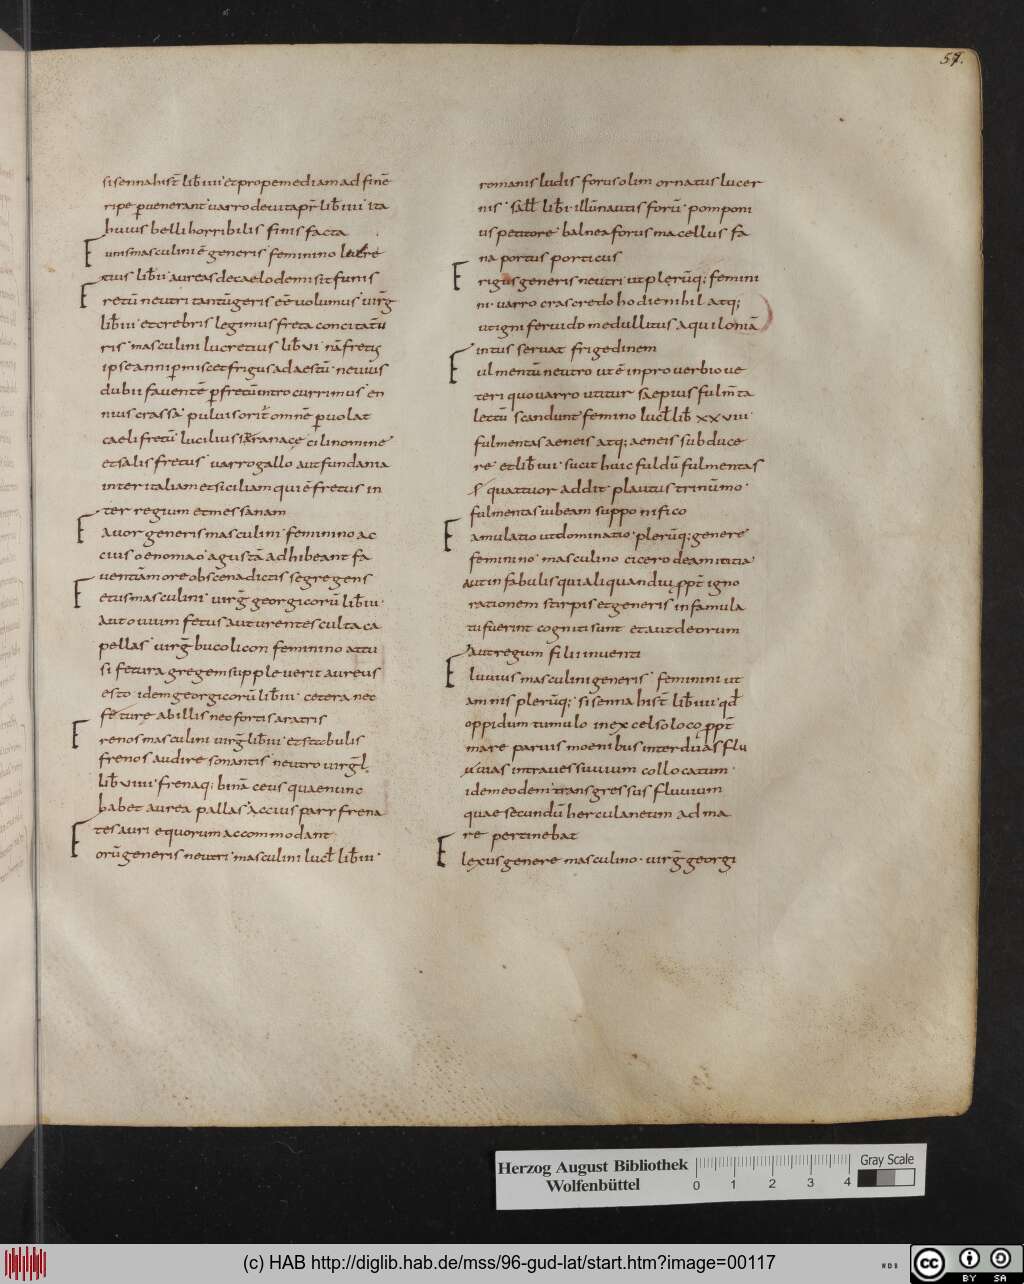 57.
sisenna hist̄ lib̄ iiii et prope mediam ad finē
ripe puenerant uarro de uita pr̄ lib̄ iiii ita
huius belli horribilis finis facta
Funis masculini ē generis feminino lucre
tius lib̄ ii aureas de caelo demisit funis
Fretū neutri tantū geris eē uolumus uirg̅
lib̄ iii et crebris legimus freta concitatū
ris masculini lucretius lib̄ vi nā fretus
ipse anni pmiscet frigus ad aestū neuius
dubii fauentē p fretū intro currimus en
nius crassa pului sorit omnē puolat
caeli fretū lucilius
et salis fretus uarro gallo aut fundania
inter italiam et siciliam qui ē fretus in
ter regium et messanam
Fauor generis masculini feminino ac
cius oenomao agustā adhibeant fa
uentiā more obscena dictis segregens
Fetus masculini uirg̅ georgicorū lib̄ iii
aut ouium fetus aut urentes culta ca
pellas uirg̅ bucolicon feminino attu
si fetura gregem suppleuerit aureus
esto idem georgicorū lib̄ iii cetera nec
feture abillis nec fortis aratris
Frenos masculini uirg̅ lib̄ iii et stabulis
frenos audire sonantis neutro uirg̅l
lib̄ viiii frenaq; binā ceus quae nunc
habet aurea pallas accius parr frena
tesauri equorum accommodant
Forū generis neutri masculini lucl̄ lib̄ iii
romanis ludis forus olim ornatus lucer
nis sall̄ lib̄ i illū nautis forū pomponi
us petitore balnea forus macellus fa
na portus porticus
Frigus generis neutri ut plerūq; femini
ni uarro cras credo hodie nihil atq;
ut igni feruido medullitus aquiloniā
intus seruat frigedinem
Fulmentū neutro ut ē in prouerbio ue
teri quo uarro utitur saepius fulm̄ta
lectū scandunt femino lucl̄ lib̄ xxviii
fulmentas aeneis atq; aeneis subduce
re et lib̄ iiii sucit huic fuldū fulmentas
quattuor addit plautus trinūmo
fulmentas iubeam suppo nifico
Famulatio ut dominatio plerūq; genere
feminino masculino cicero de amititia
aut in fabulis qui aliquandiu ppt̄ igno
rationem stirpis et generis in famula
tu fuerint cogniti sunt et aut deorum
aut regum filii inuenti
Fluuius masculini generis feminini ut
amnis plerūq; sisenna hist̄ lib̄ iiii qd̄
oppidum tumulo in excelso loco ppt̄
mare paruis moenibus inter duas flu
uias intra uessuuium collocatum
idem eodem transgressus fluuium
quae secundū herculaneum ad ma
re pertinebat
Flexus genere masculino uirg̅ georgi
Herzog August Bibliothek
Wolfenbüttel
0 1 2 3 4
Gray Scale
(c) HAB http://diglib.hab.de/mss/96-gud-lat/start.htm?image=00117
WDB
cc BY SA